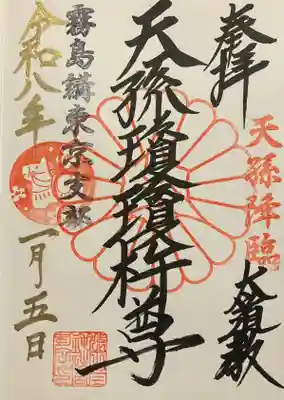 奉拝
天孫降臨
天孫瓊瓊杵尊
霧島講東京支部
令和八年
一月五日